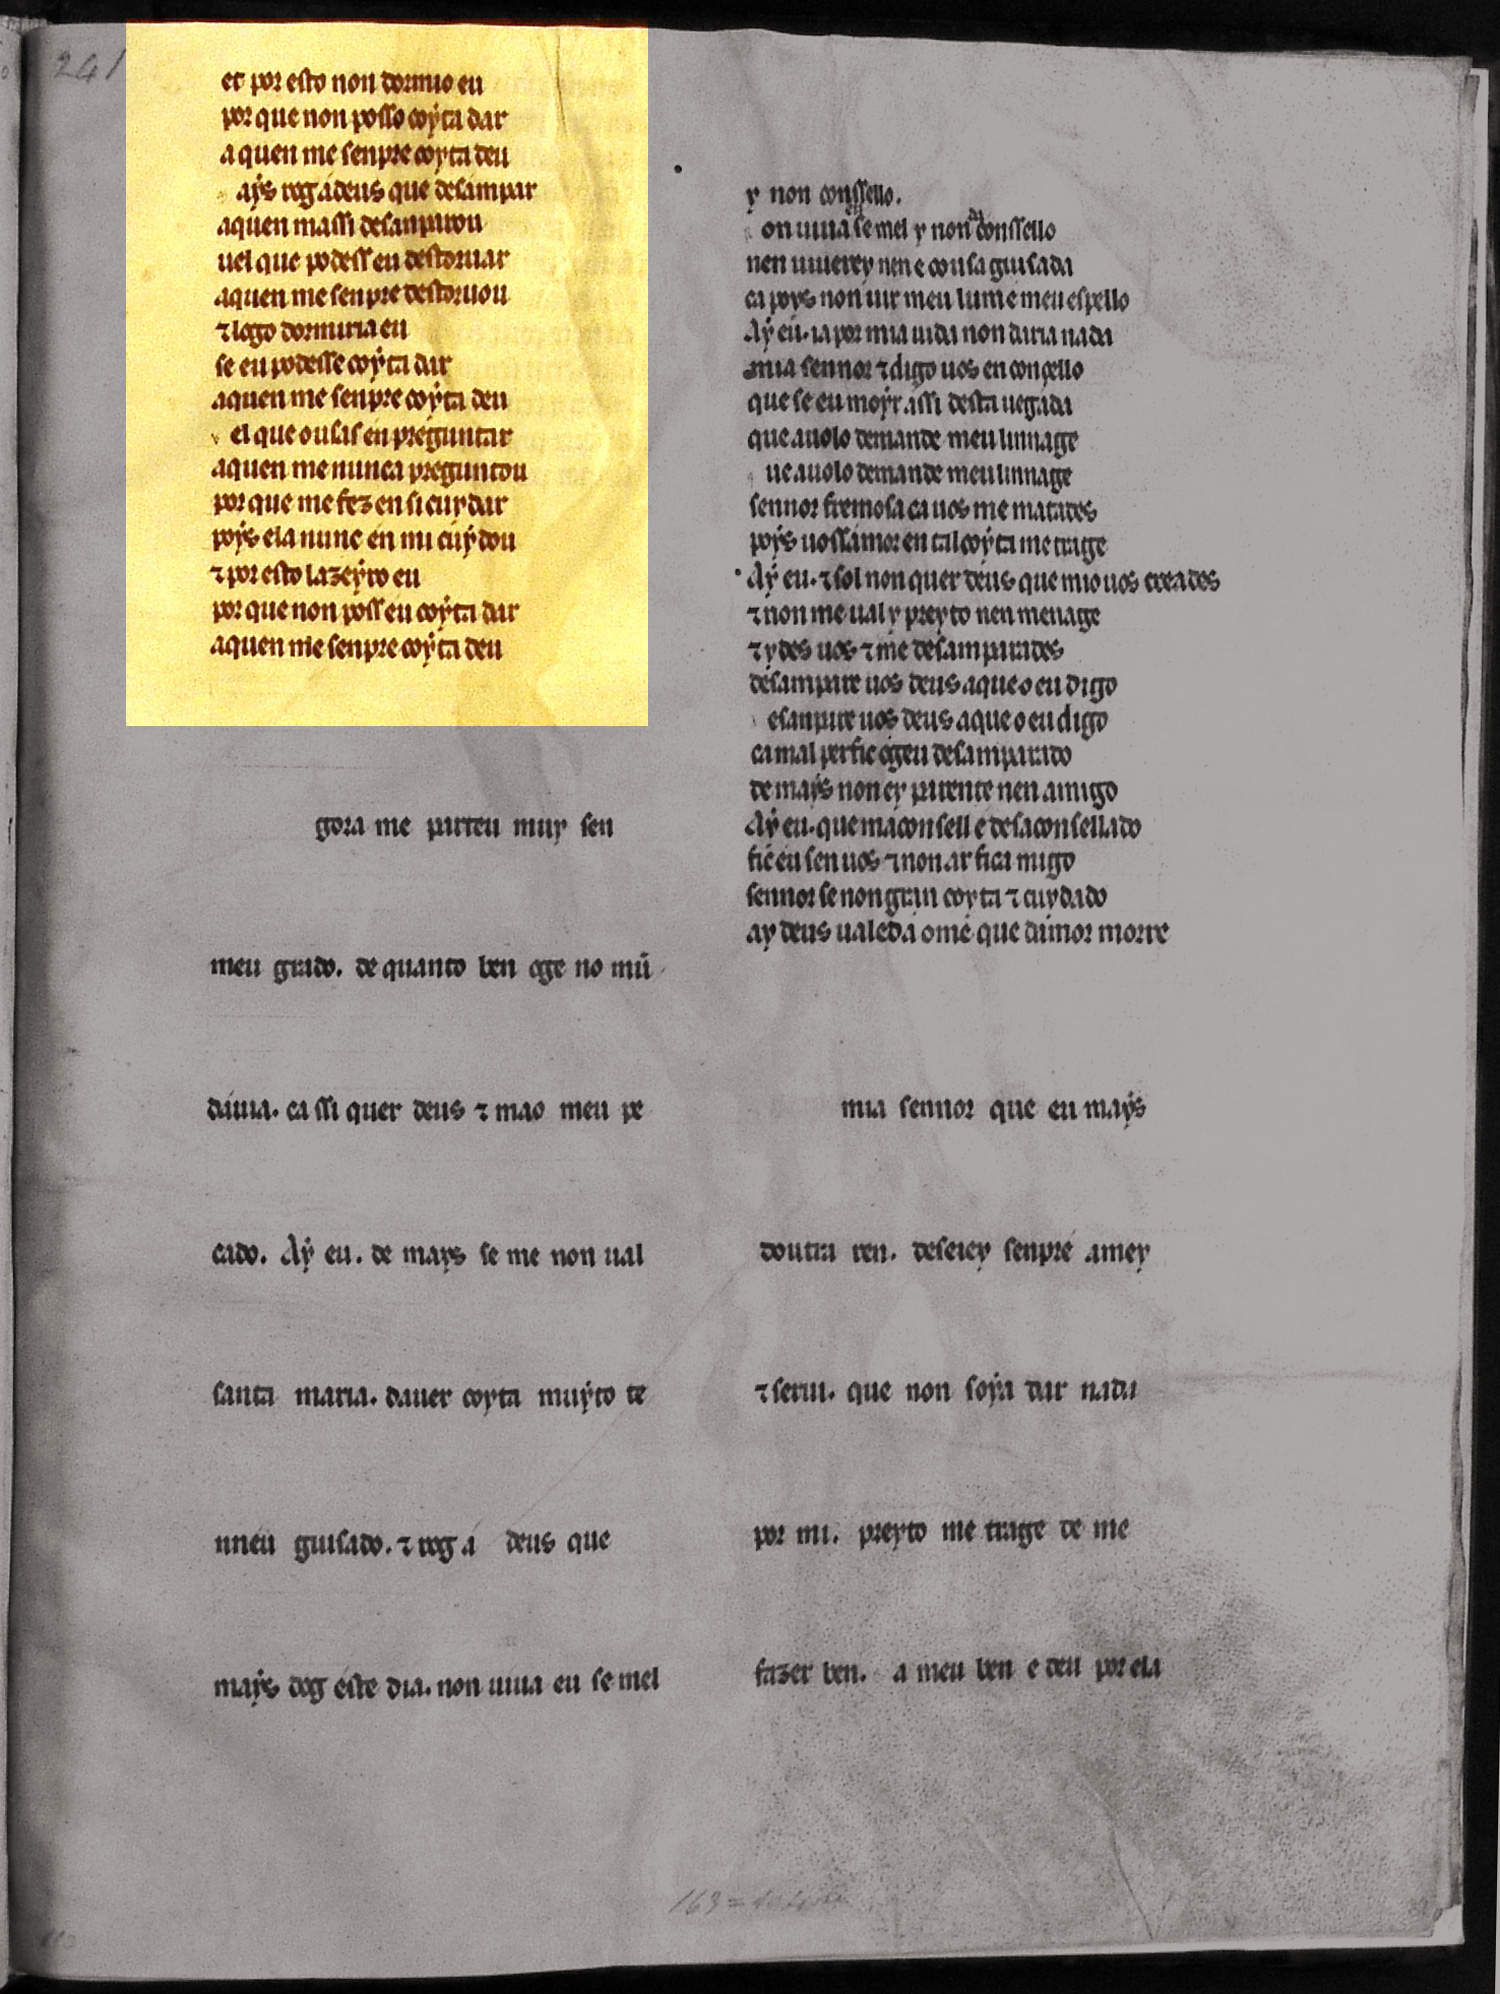 241
et por esto non dormio eu
por que non posso coÿta dar
a quen me senpre coyta deu
aÿs rog a deus que desampar
aquen massi desanparou
uel que podess eu destoruar
aquen me senpre destoruou
⁊ logo dormiria eu
se eu podesse coÿta dar
aquen me senpre coÿta deu
el que ousas en preguntar
aquen me nunca preguntou
por que me fez en si cuydar
poÿs ela nunc en mi cuÿdou
⁊ por esto lazeÿro eu
por que non poss eu coÿta dar
aquen me senpre coÿta deu
gora me parteu muy sen
meu grado. de quanto ben oge no mũ
dauia. ca ssi quer deus ⁊ mao meu pe
cado. Aÿ eu. de mays se me non ual
santa maria. dauer coyta muÿto te
nneu guisado. ⁊ rog a deus que
maÿs dog este dia. non uiua eu se mel
y non conssello.
on uiua se mel y non dá conssello
nen uiuerey nen e cousa guisada
ca poys non uir meu lume meu espello
Aÿ eu. ia por mia uida non daria nada
mia sennor ⁊ digo uos en conçello
que se eu moÿr assi desta uegada
que auolo demande meu linnage
ue auolo demande meu linnage
sennor fremosa ca uos me matades
poÿs uossamor en tal coÿta me trage
Aÿ eu. ⁊ sol non quer deus que mio uos creades
⁊ non me ual y preyto nen menage
⁊ ydes uos ⁊ me desamparades
desampare uos deus a que o eu digo
esanpare uos deus a que o eu digo
ca mal per fic ogeu desamparado
de maÿs non ey parente nen amigo
Aÿ eu. que maconsell e desaconsellado
fic eu sen uos ⁊ non ar fica migo
sennor se non gran coyta ⁊ cuydado
ay deus ualed a ome que damor morre
mia sennor que eu maÿs
doutra ren. deseiey senpre amey
⁊ serui. que non soÿa dar nada
por mi. preyto me trage de me
fazer ben. a meu ben e deu por ela